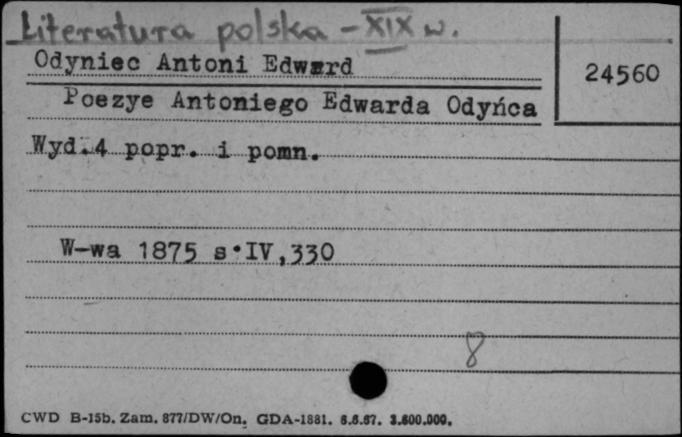 Literatura polska - XIX w.
Odyniec Antoni Edward
24560
Poezye Antoniego Edwarda Odyńca
Wyd.4 popr. i pomn.
W-wa 1875 s.IV,330
8
CWD B-15b. Zam. 877/DW/On. GDA-1881. 6.6.67. 3.600.000.